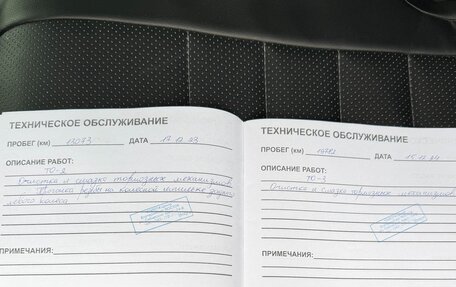 ТЕХНИЧЕСКОЕ ОБСЛУЖИВАНИЕ
ПРОБЕГ (км) 13073 ДАТА 17.12.23
ОПИСАНИЕ РАБОТ:
ТО-2
Очистка и смазка тормозных механизмов
резьбы на колёсной шпильке заднего
левого колеса
ПРИМЕЧАНИЯ:
ТЕХНИЧЕСКОЕ ОБСЛУЖИВАНИЕ
ПРОБЕГ (км) ДАТА 15.12.24
ОПИСАНИЕ РАБОТ:
ТО-3
Очистка и смазка тормозных механизмов
ПРИМЕЧАНИЯ: